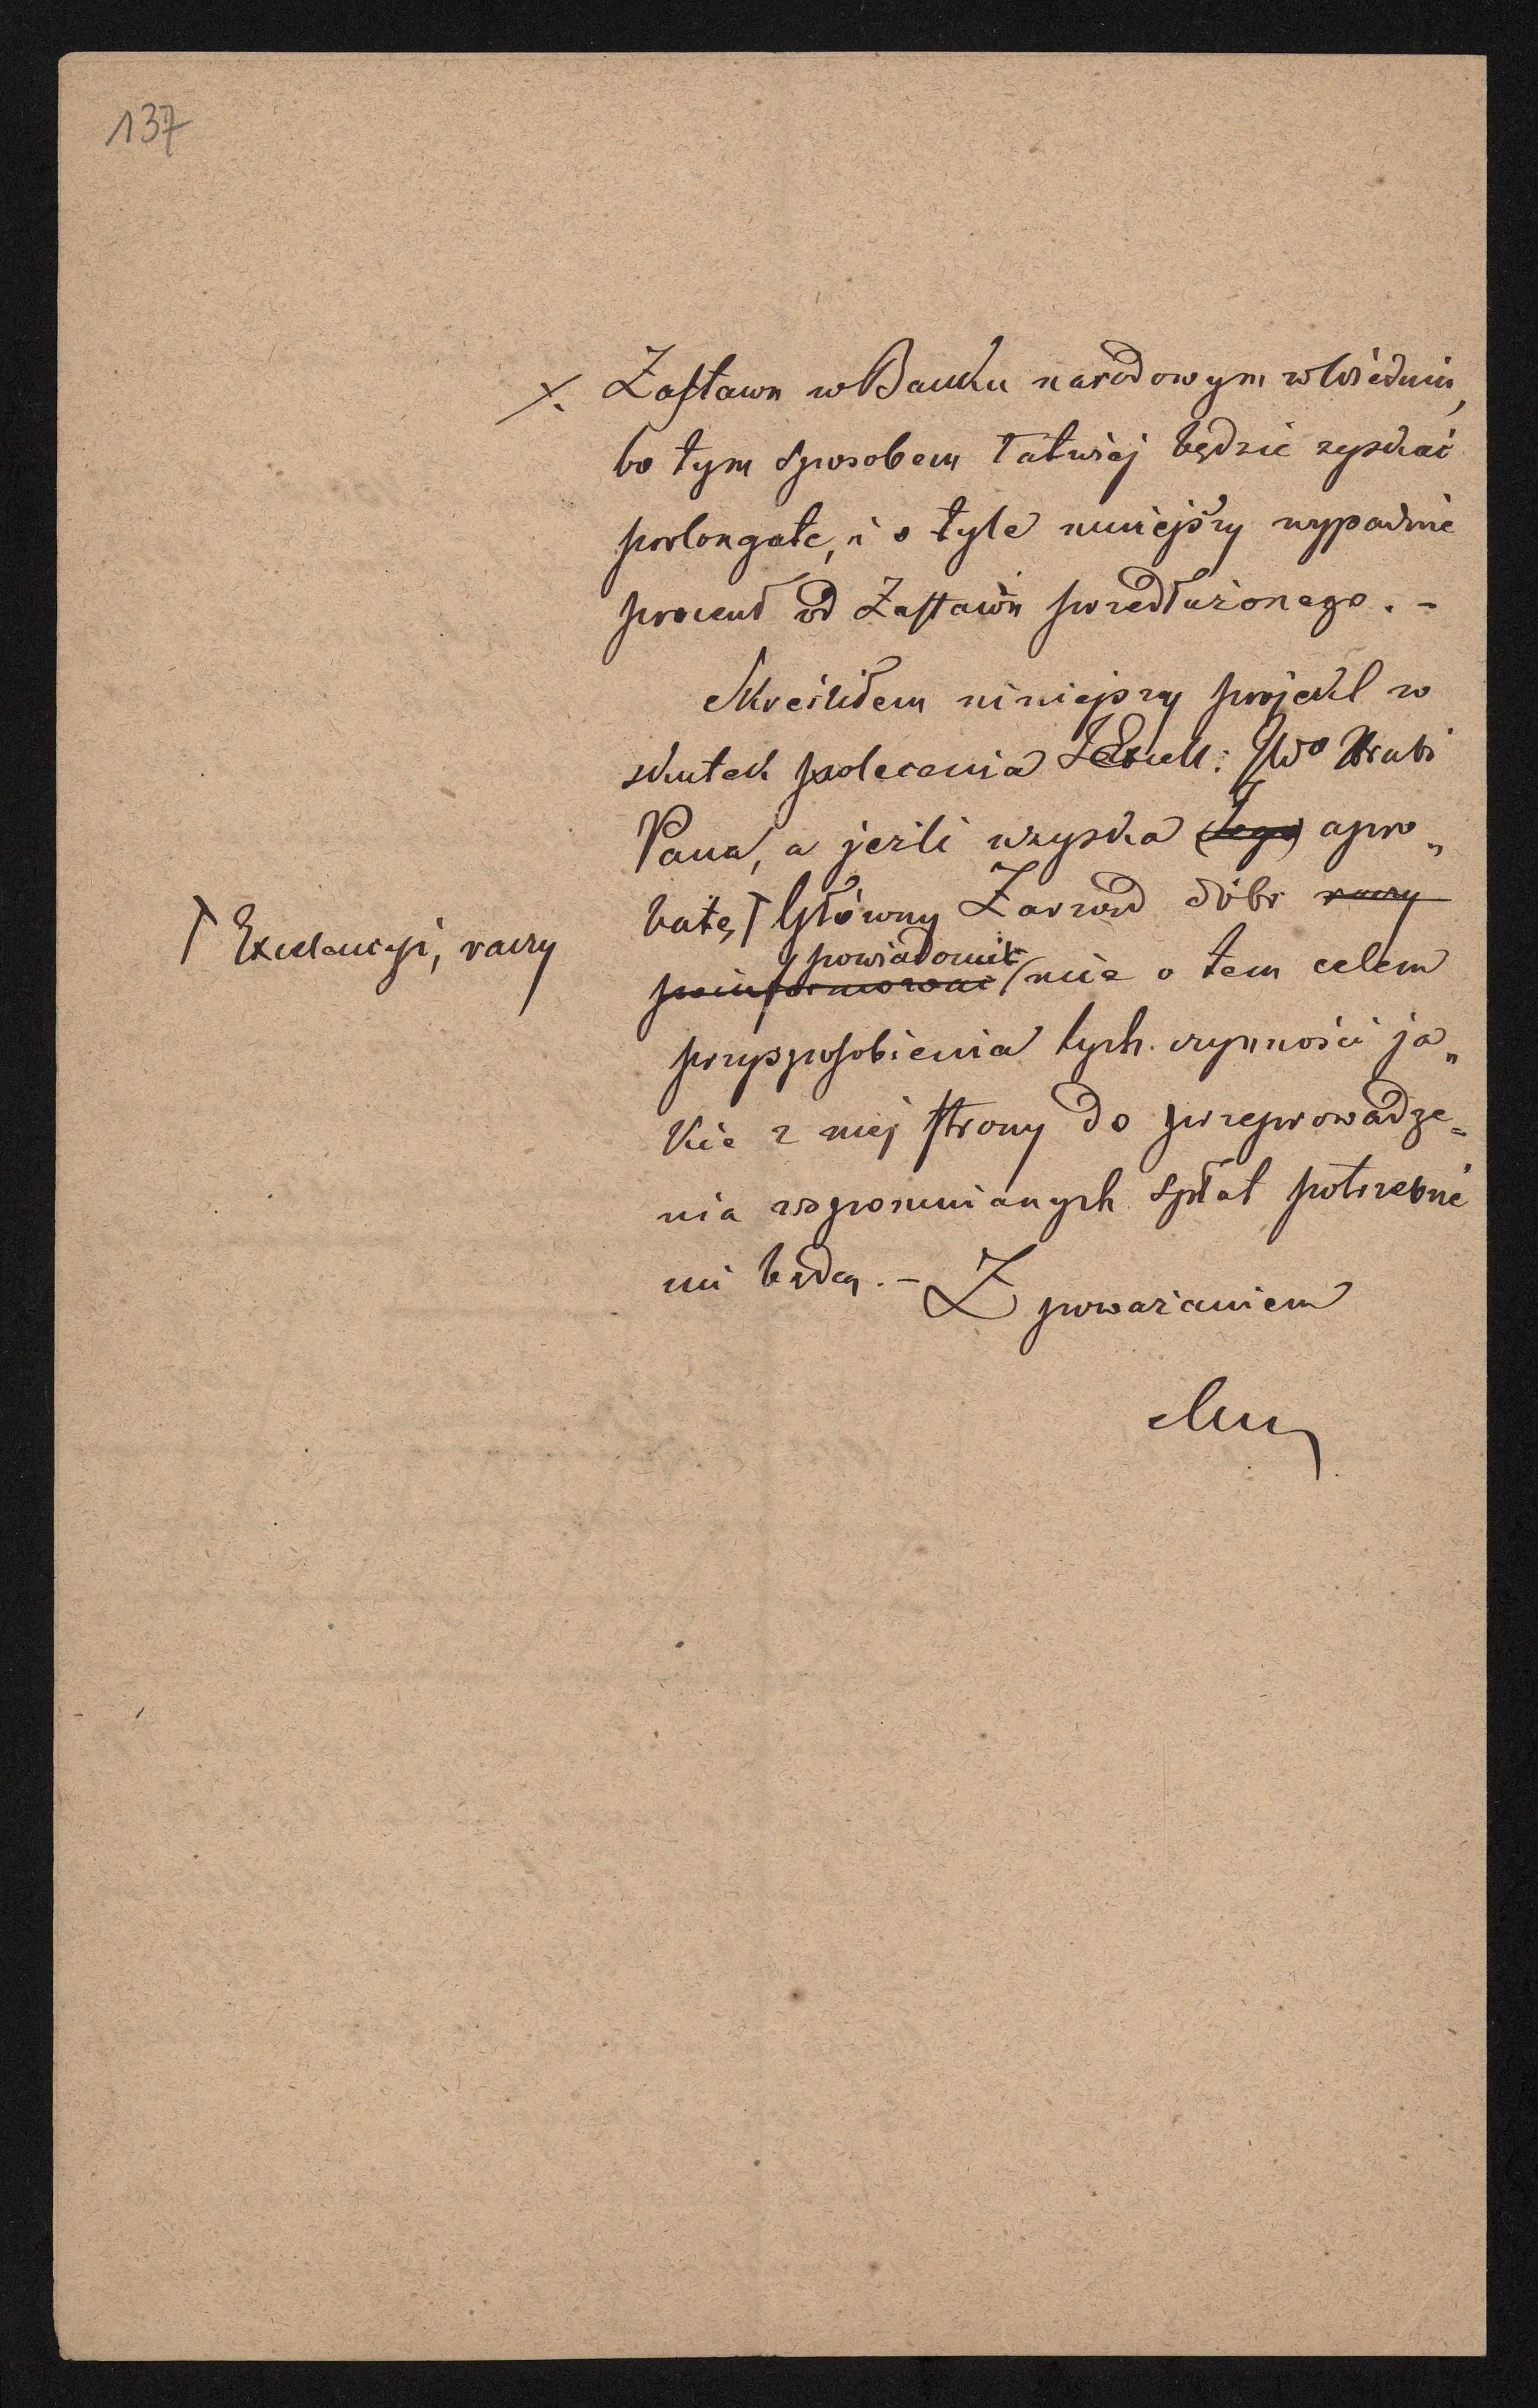 137
x. Zastawn w Banku narodowym w Wiedniu,
bo tym sposobem łatwiej będzie zyskać
prolongatę, i o tyle mniejszy wypadnie
procent od Zastawu przedłużonego. -
Skreśliłem niniejszy projekt w
skutek polecenia JExcell: JWo Hrabi
Pana, a jeżli uzyska (Jego) apro„
batę, ꓔ Główny Zarząd dóbr raczy
ꓔ Excelencyi, raczy
powiadomić
poinformować mie o tem celem
przysposobienia tych czynności ja„
kie z mej strony do przeprowadze=
nia wspomnianych spłat potrzebne
mi będą. - Z poważaniem